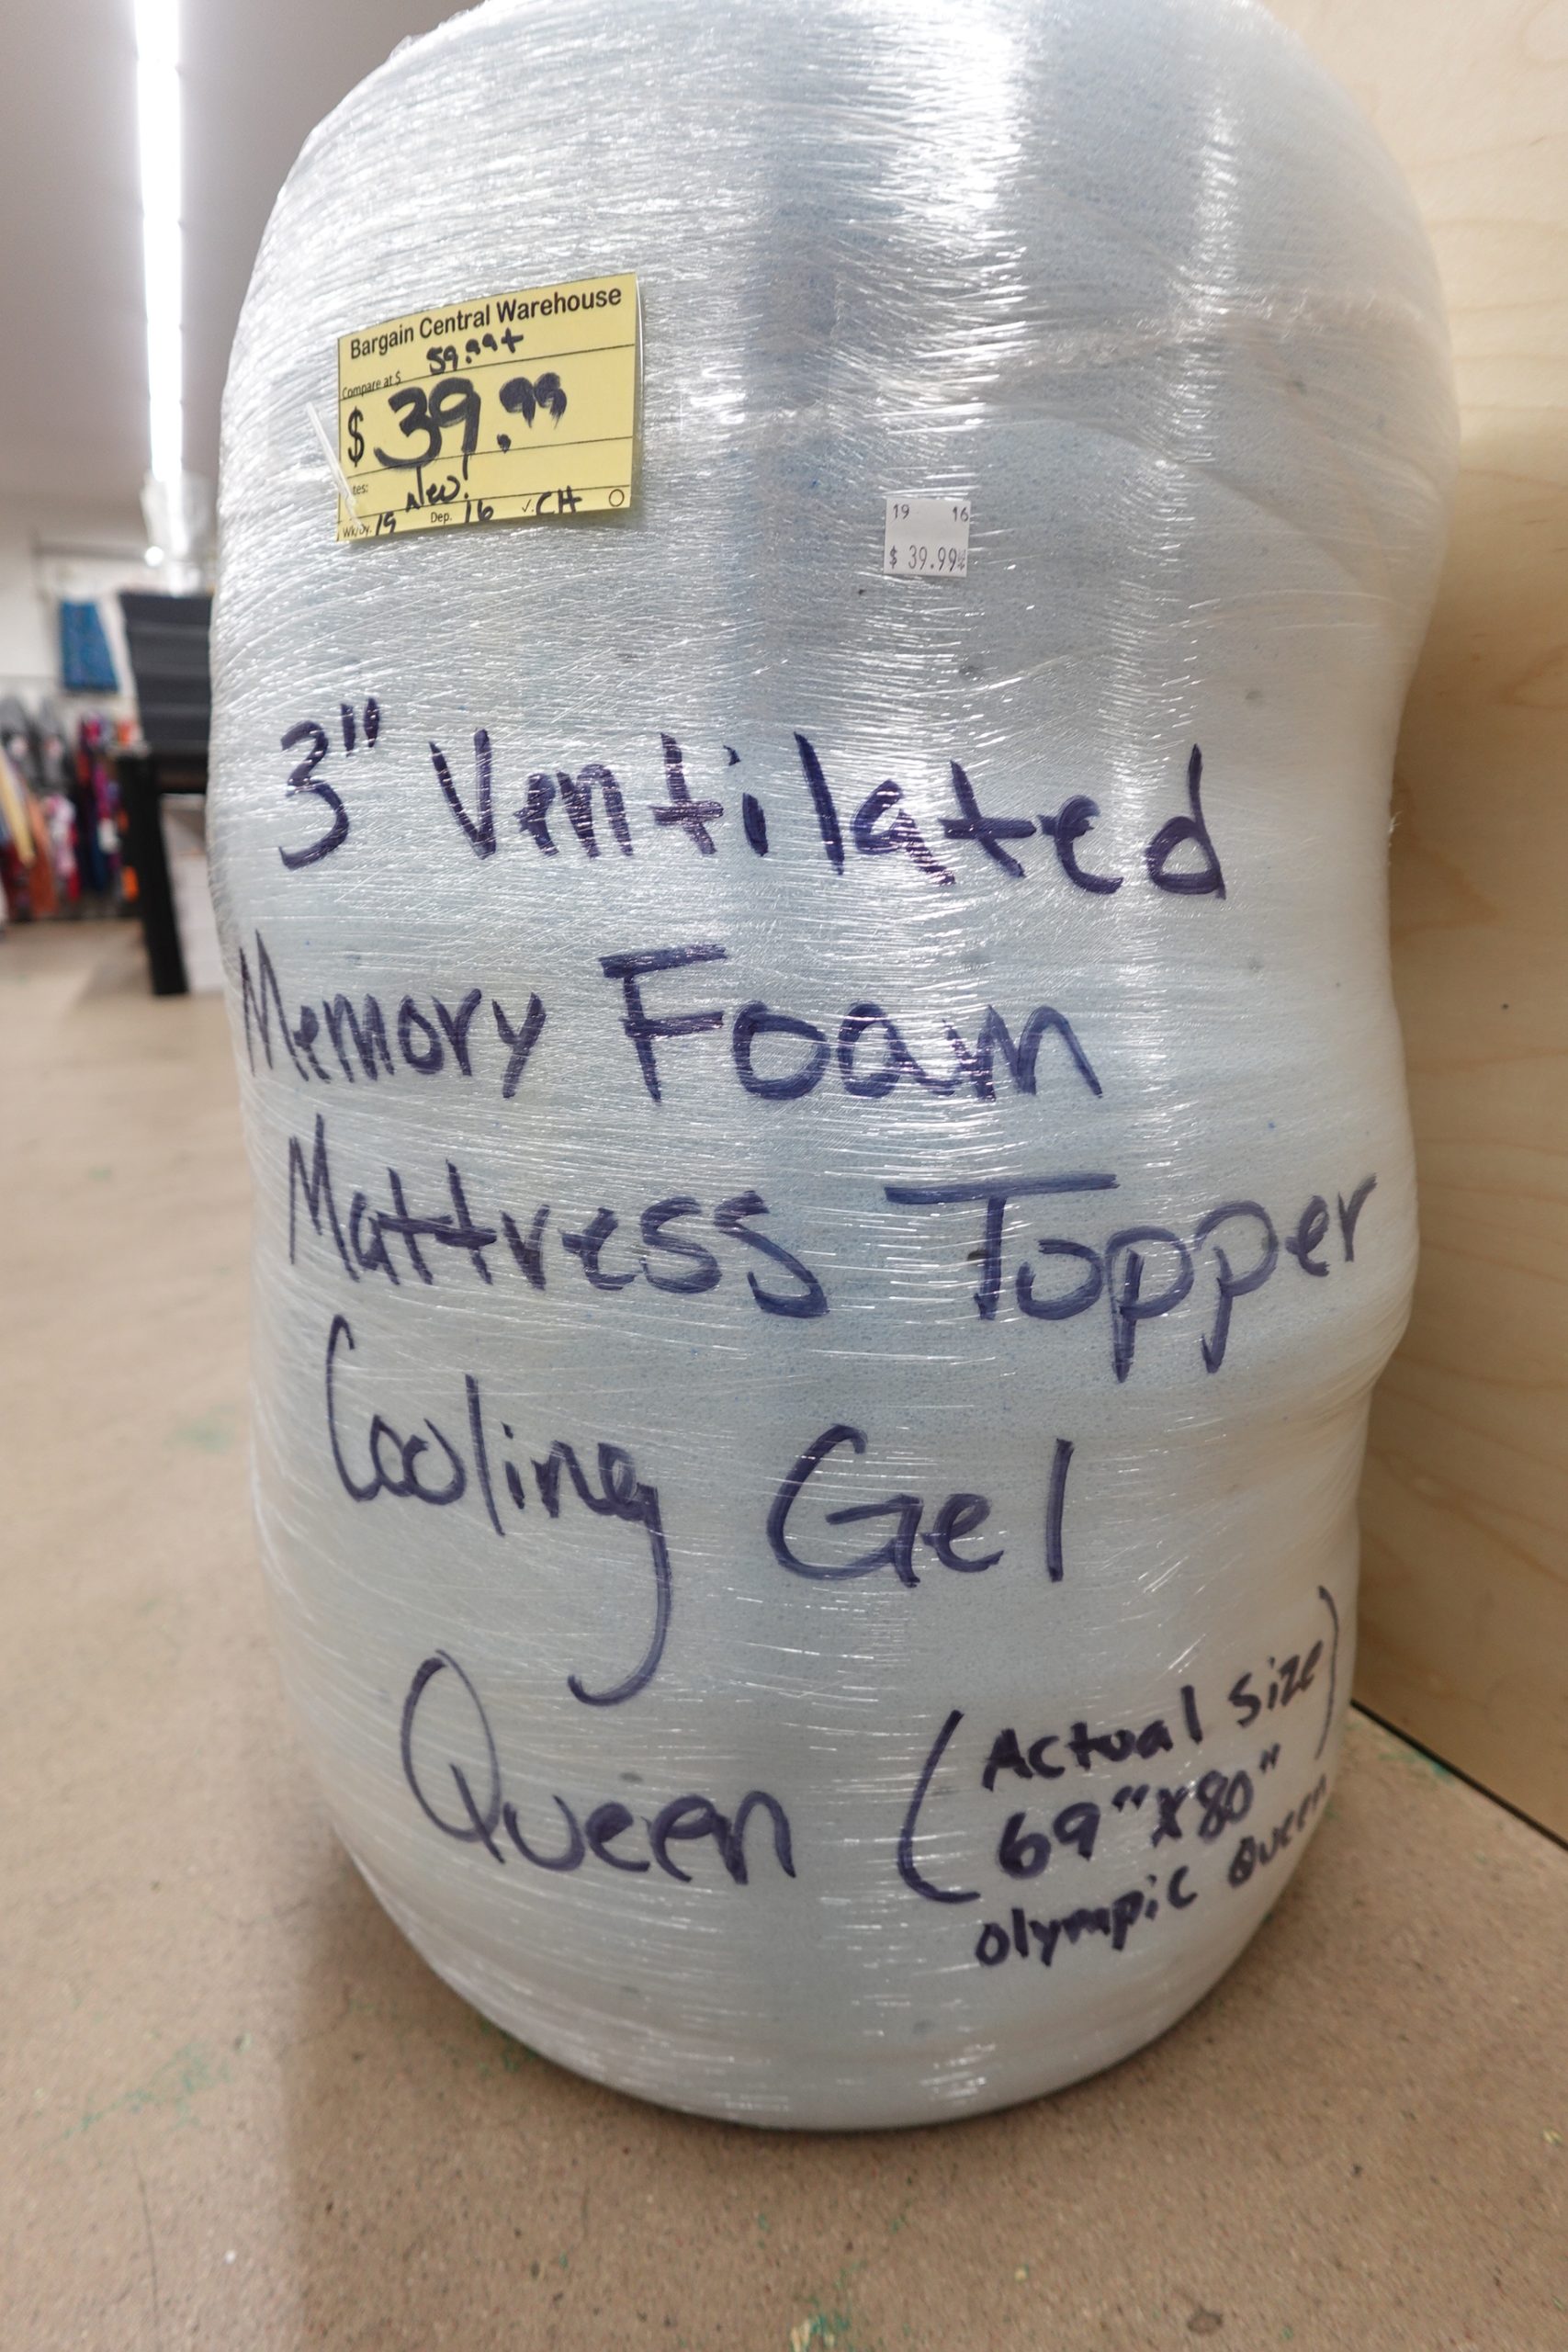 Bargain Central Warehouse
Compare at $ 59.99+
$ 39.99
tes: New!
Wk/Dy. 19 Dep. 16 ✓. CH
19 16
$ 39.99
3" Ventilated
Memory Foam
Mattress Topper
Cooling Gel
Queen (Actual Size)
69" X 80"
Olympic Queen